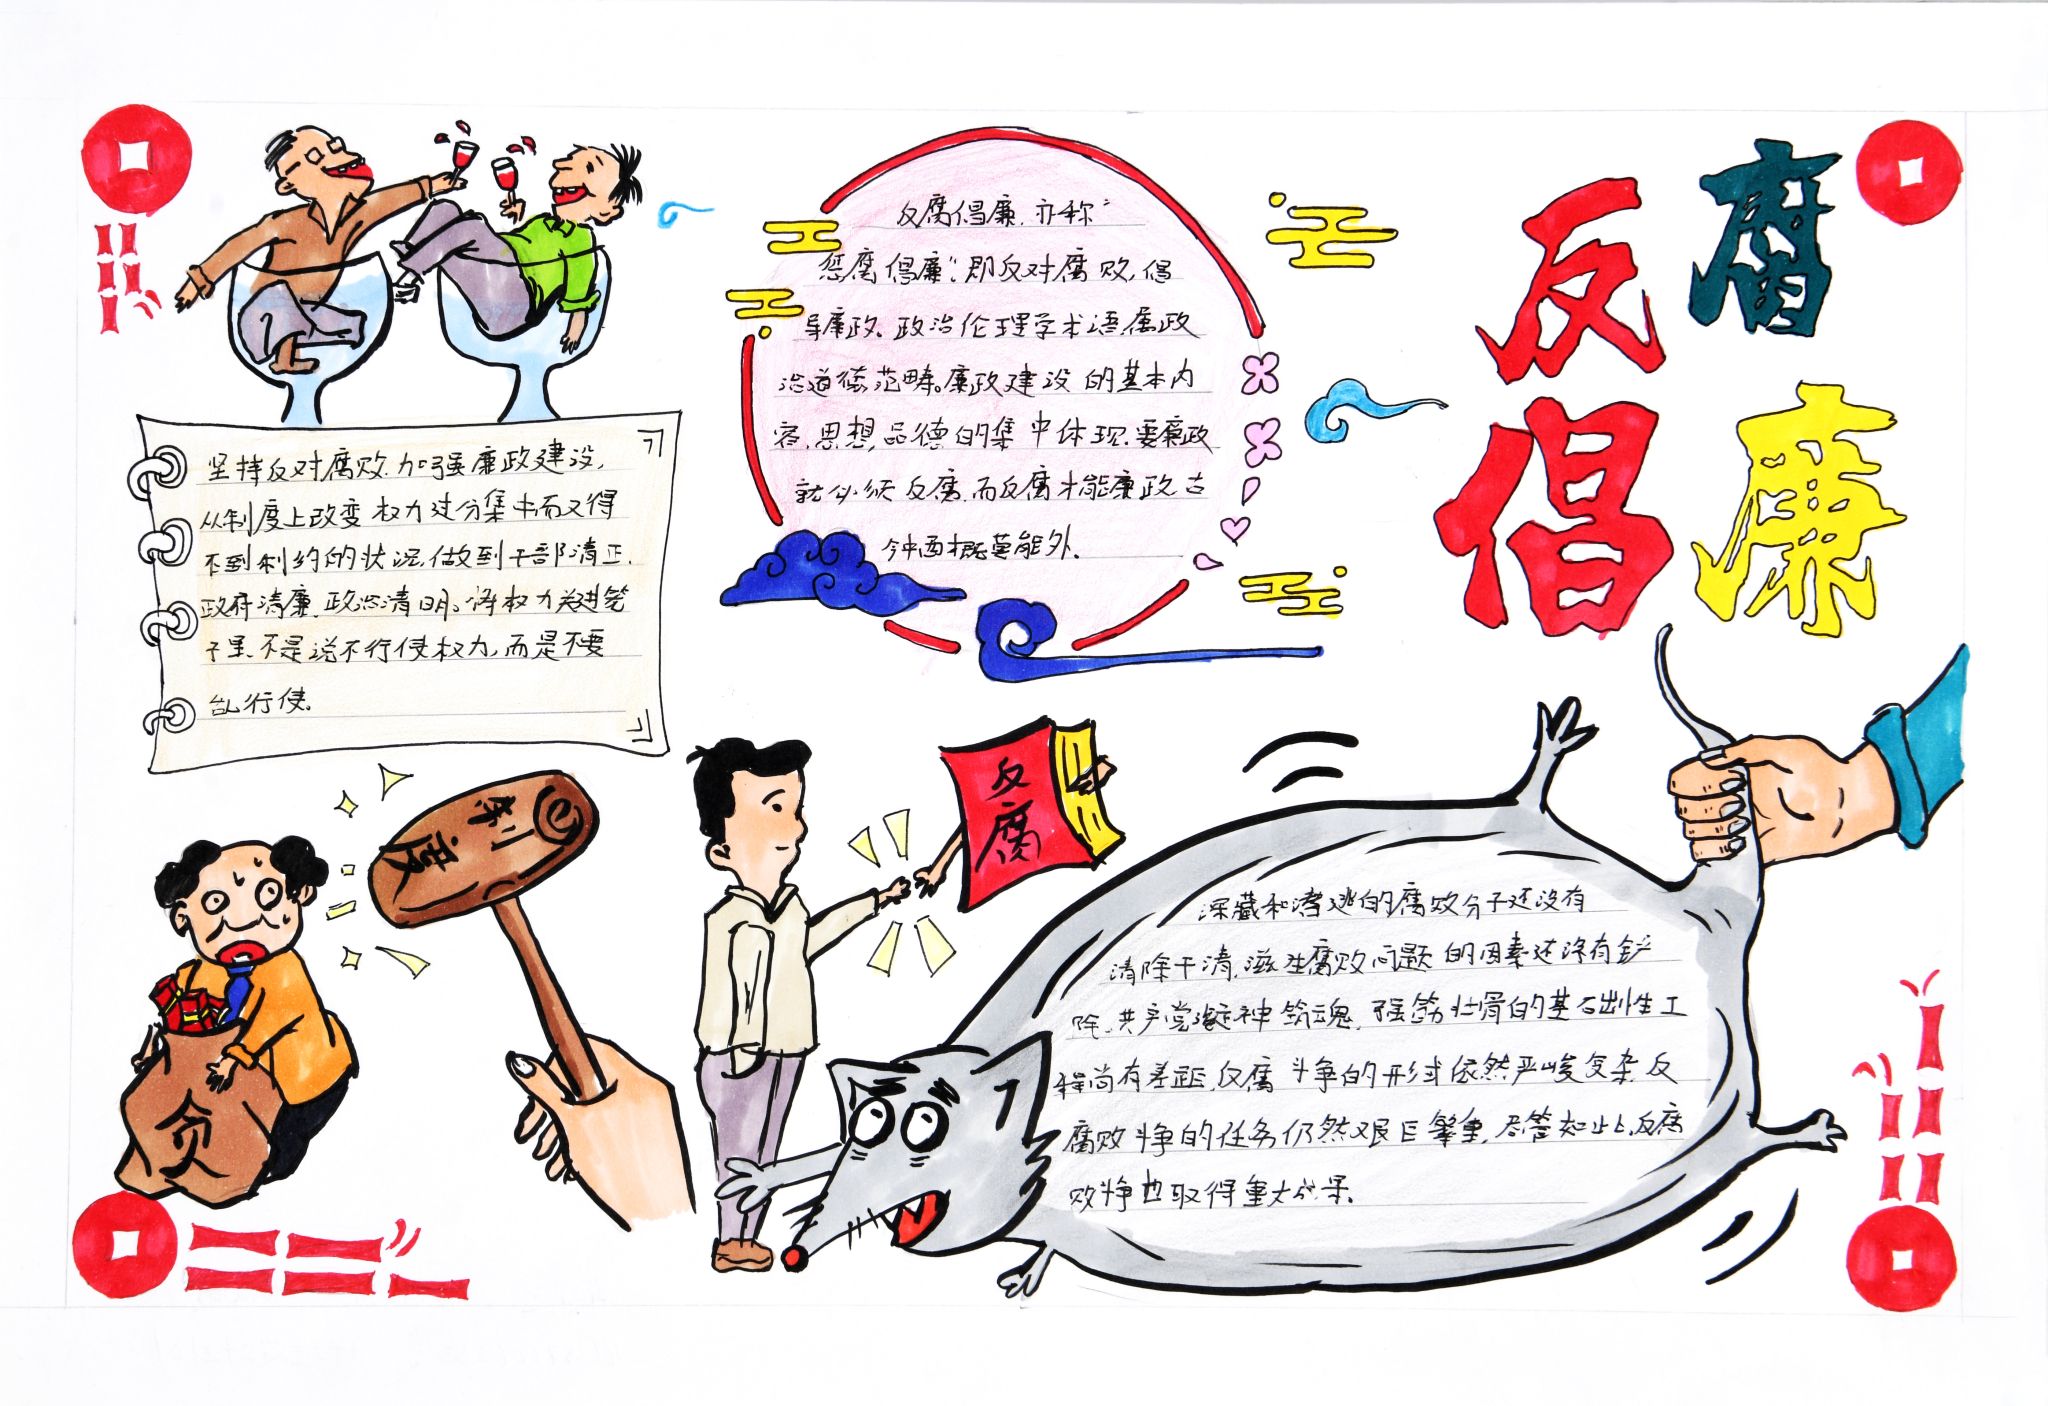 反腐
倡廉
反腐倡廉,亦称“
惩腐倡廉”,即反对腐败,倡
导廉政、政治伦理学术语,属政
治道德范畴。廉政建设的基本内
容,思想,品德的集中体现,要廉政
就必须反腐,而反腐才能廉政,古
今中西概莫能外。
坚持反对腐败,加强廉政建设,
从制度上改变权力过分集中而又得
不到制约的状况,做到干部清正,
政府清廉,政治清明。将权力关进笼
子里,不是说不行使权力,而是不要
乱行使。
制度
贪
反腐
深藏和潜逃的腐败分子还没有
清除干清,滋生腐败问题的因素还没有铲
除,共产党凝神铸魂,强筋壮骨的基石出性工
程尚有差距,反腐斗争的形式依然严峻复杂,反
腐败斗争的任务仍然艰巨繁重,尽管如此上,反腐
败斗争也取得重大成果。